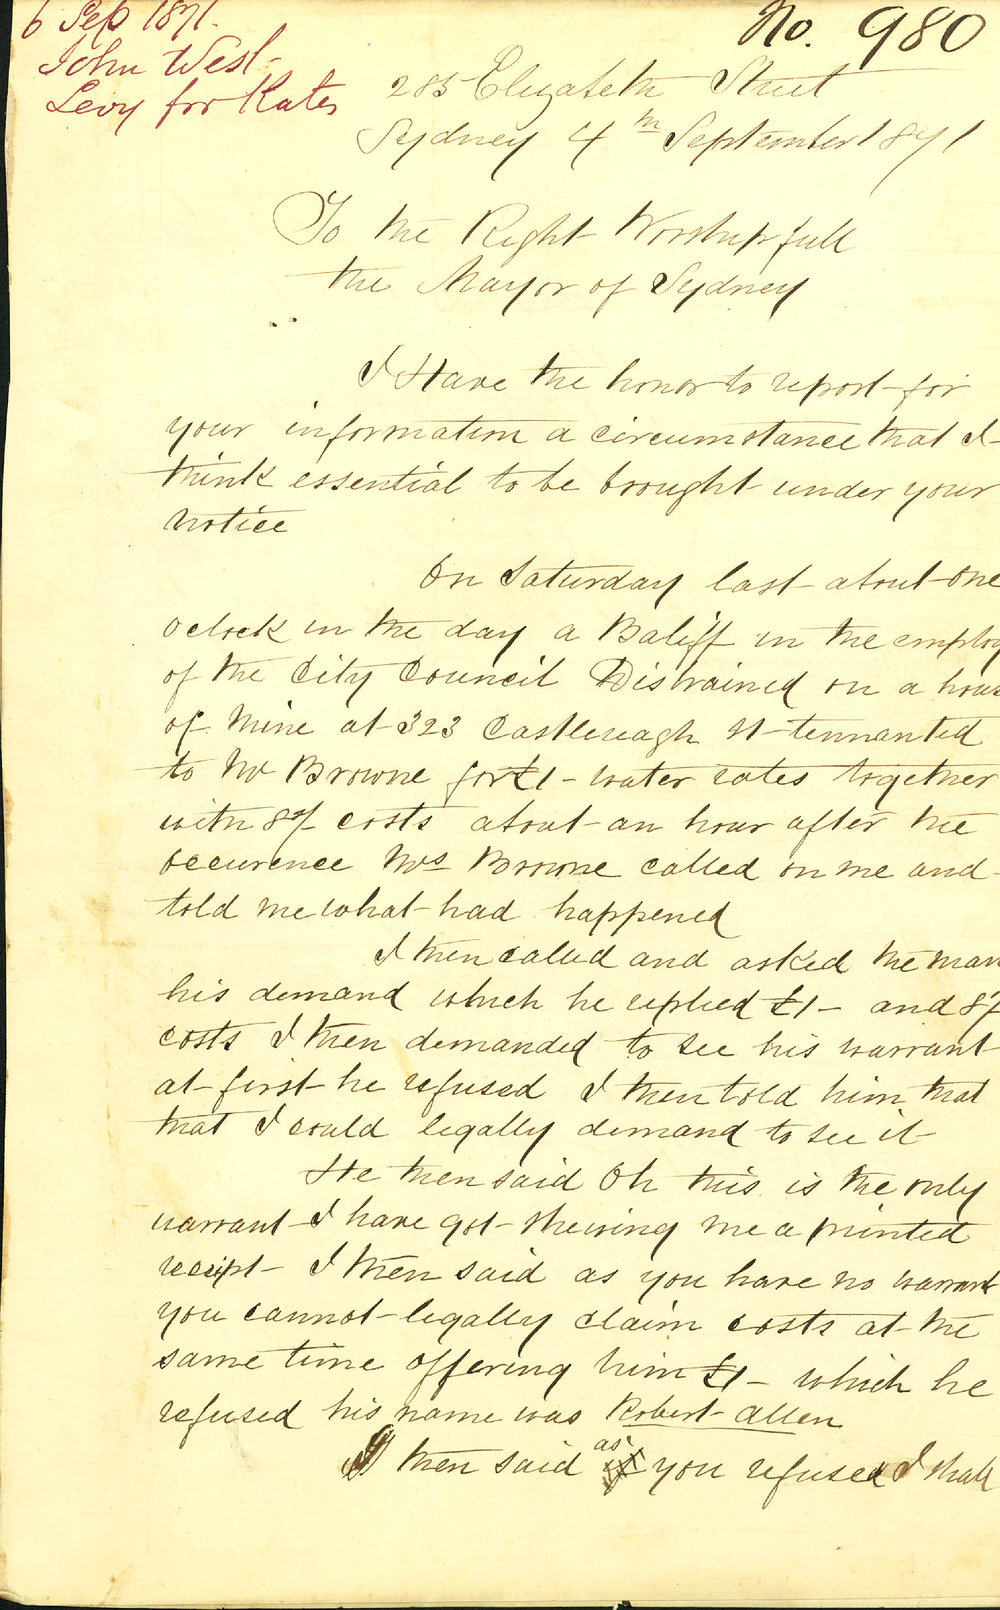 6 Sep 1871.
John West
Levy for Rates
No. 980
285 Elizabeth Street
Sydney 4th September 1871
To the Right Worshipfull
the Mayor of Sydney
I Have the honor to report for
your information a circumstance that I
think essential to be brought under your
notice
On Saturday last about one
oclock in the day a Baliff in the employ
of the City Council Distrained on a house
of mine at 323 Castlereagh St tennanted
to Mr Browne for £1 - water rates together
with 8/ costs about an hour after the
occurence Mrs Browne called on me and
told me what had happened
I then called and asked the man
his demand which he replied £1 - and 8/
costs I then demanded to see his warrant
at first he refused I then told him that
that I could legally demand to see it
He then said Oh this is the only
warrant I have got shewing me a printed
receipt - I then said as you have no warrant
you cannot legally claim costs at the
same time offering him £1 - which he
refused his name was Robert Allen
I then said as you refused I shall